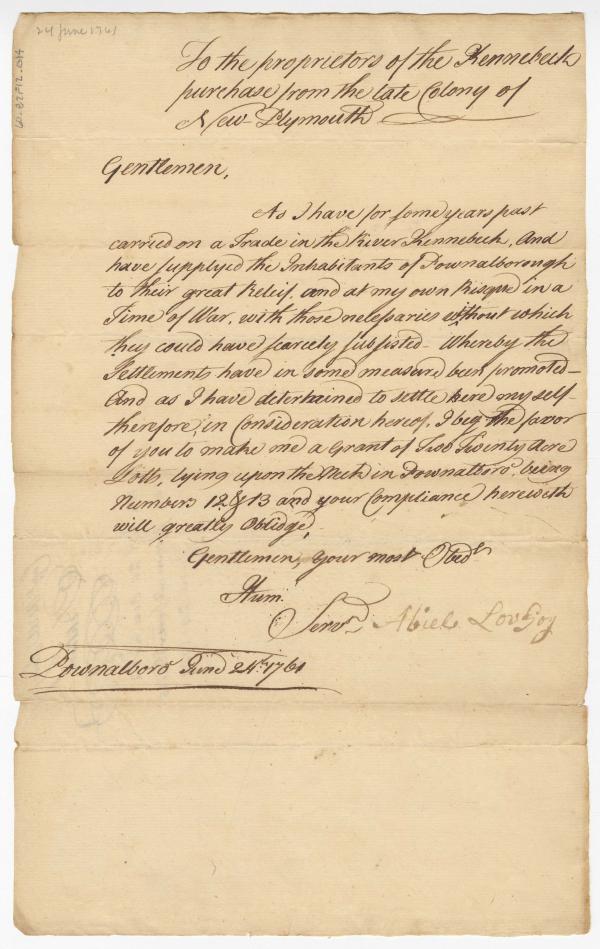 24 June 1761
To the proprietors of the Kennebeck
purchase from the late Colony of
New Plymouth
Gentlemen,
As I have for some years past
carried on a Trade in the River Kennebeck, And
have supplyed the Inhabitants of Pownalborough
to their great Releif, and at my own Risque in a
Time of War, with those nesessaries without which
they could have scarcely subsisted - Whereby the
Settlements have in some measure been promoted -
And as I have determined to settle here my self -
therefore, in Consideration hereof, I beg the favor
of you to make me a Grant of Two Twenty Acre
Lotts, lying upon the Neck in Pownalboro. being
Numbers 12 & 13 and your Compliance herewith
will greatly Oblidge,
Gentlemen, your most Obedt
Hum.
Servt. Abiel Lovejoy
Pownalboro June 24th. 1761